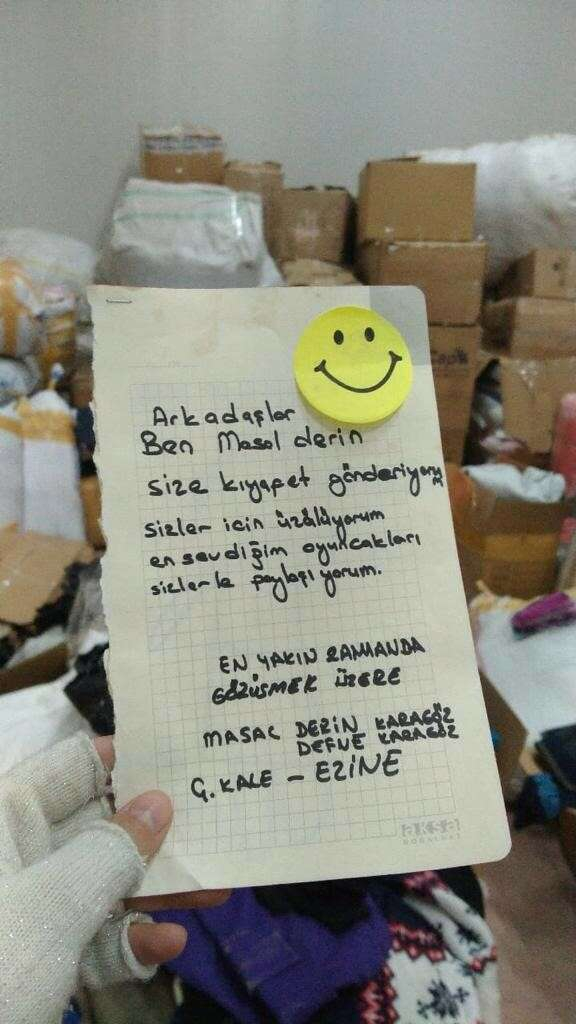 Arkadaşlar
Ben Masal derin
size kıyafet gönderiyorum
sizler için üzülüyorum
en sevdiğim oyuncakları
sizlerle paylaşıyorum.
EN YAKIN ZAMANDA
GÖZÜŞMEK ÜZERE
MASAL DERİN KARAGÖZ
DEFNE KARAGÖZ
Ç.KALE - EZİNE
AKSA
DOĞALGAZ